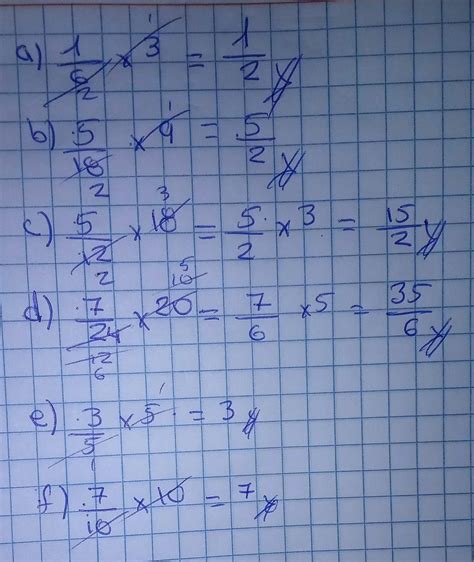 a) 1/6 2 × 3 1 = 1/2
b) 5/18 2 × 9 1 = 5/2
c) 5/12 2 × 18 3 = 5/2 × 3 = 15/2
d) 7/24 12 6 × 20 10 5 = 7/6 × 5 = 35/6
e) 3/5 1 × 5 1 = 3
f) 7/10 × 10 = 7